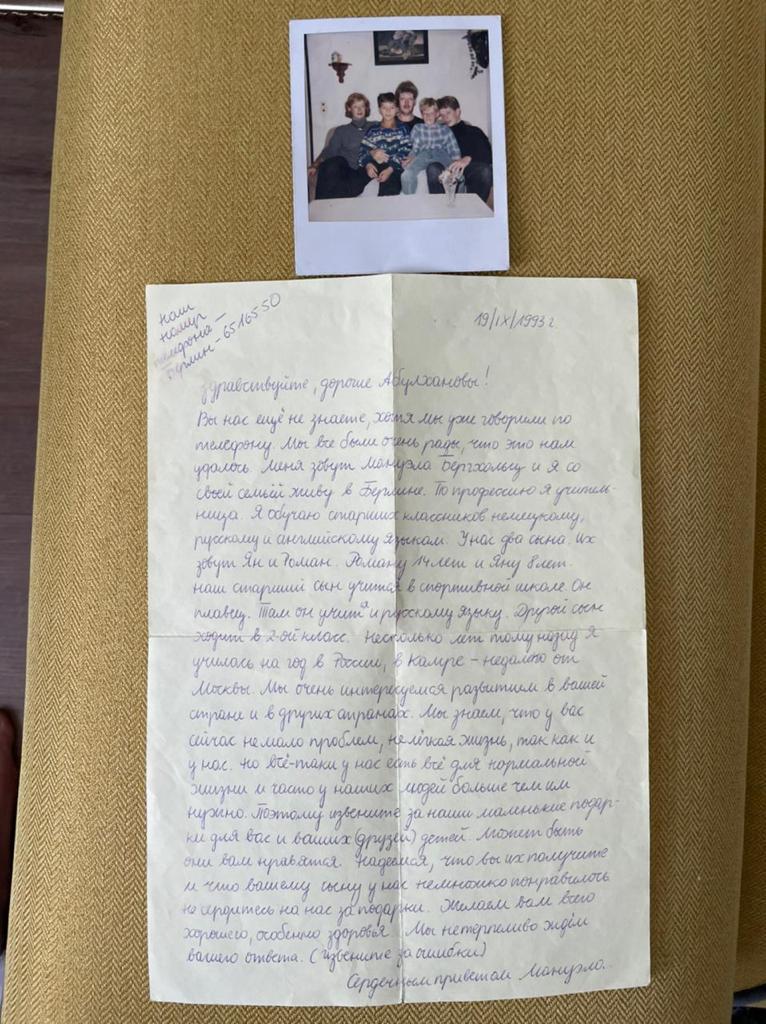 наш
номер
телефона –
Берлин – 6516550
19/IX/1993 г.
Здравствуйте, дорогие Абулхановы!
Вы нас ещё не знаете, хотя мы уже говорили по
телефону. Мы все были очень рады, что это нам
удалось. Меня зовут Мануэла Бергхольц и я со
своей семьёй живу в Берлине. По профессию я учитель-
ница. Я обучаю старших классников немецкому,
русскому и английскому языкам. У нас два сына. Их
зовут Ян и Роман. Роману 14 лет и Яну 8 лет.
Наш старший сын учится в спортивной школе. Он
плавец. Там он учится и русскому языку. Другой сын
ходит в 2-ой класс. Несколько лет тому назад я
училась на год в России, в – недалеко от
Москвы. Мы очень интересуемся развитием в вашей
стране и в других странах. Мы знаем, что у вас
сейчас немало проблем, нелёгкая жизнь, так как и
у нас. Но всё-таки у нас есть всё для нормальной
жизни и часто у наших людей больше чем им
нужно. Поэтому извените за наши маленькие подар-
ки для вас и ваших (друзей) детей. Может быть
они вам нравятся. Надеемся, что вы их получите
и что вашему сыну у нас немножко понравилось.
Не сердитесь на нас за подарки. Желаем вам всего
хорошего, особенно здоровья. Мы нетерпеливо ждём
вашего ответа. (Извените за ошибки)
Сердечным приветом Мануэла.